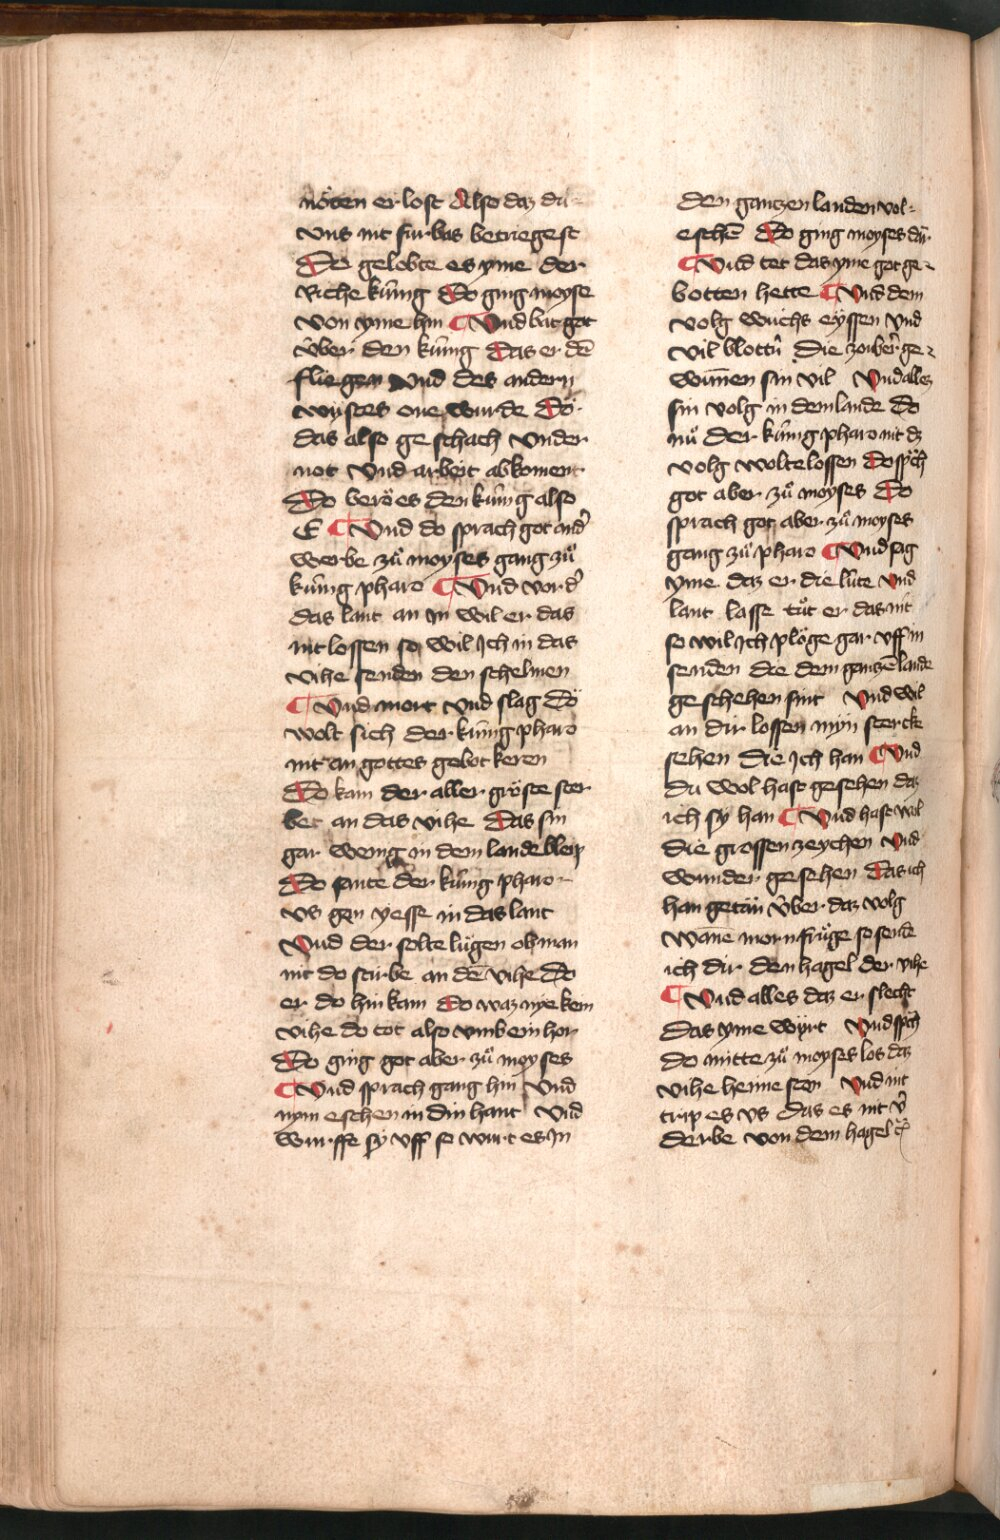 nöten er lost Also daz du
vns nit furbas betriegest
Do gelobte es yme der
Riche kúnig Do ging moyse
von yme hin ¶ Vnd bat got
v̊ber den kúnig das er dē
fliegen vnd des andern
wystes one wurde Do
das also ge schach vnder
not vnd arbeit abkoment
Do berö es den kúnig also
E ¶ Vnd do sprach got and'
werbe zů moyses gang zů
kúnig pharo ¶ Vnd vord'
das lant an Jn wil er das
nit lossen so wil Jch in das
vihe senden den schelmen
¶ Vnd mort vnd slag Do
wolt sich der kúnig pharo
nit an gottes gebot keren
Do kam der aller gröste ster
bet an das vihe Das sin
gar wenig in dem lande bleip
Do sante der kúnig pharo
vs gen yesse in das lant
Vnd der solte lůgen ob man
nit do sturbe an dē vihe Do
er do hin kam Do waz nye kein
vihe do tot also vmb ein hor
Do ging got aber zů moyses
¶ Vnd sprach gang hin Vnd
nym eschen in din hant Vnd
wurffe sy vff so wurt es Jn
den gantzen landen vol
eschē Do ging moyses dar
¶ Vnd tet das yme got ge
botten hette ¶ Vnd dem
volg wůchs eyssen vnd
vil blottn̄ die zouber' ge
winnen sin vil Vnd alles
sin volg in dem lande Do
nů der kúnig pharo nit dz
volg wolte lossen Do sp̄ch
got aber zů moyses Do
sprach got aber zů moyses
gang zů pharo ¶ Vnd sag
yme daz er die lúte vnd
lant lasse tůt er das nit
so wil Jch plöge gar vff in
senden die dem gantzē lande
ge schehen sint Vnd wil
an dir lossen myn stercke
sehen die Jch han ¶ Vnd
du wol hast gesehen daz
ich sy han ¶ Vnd hast wol
die grossen zeychen vnd
wunder gesehen Das ich
han getān v̊ber daz volg
wanne morn frůge so sende
ich dir den hagel der vihe
¶ Vnd alles daz er slecht
das yme wyrt Vnd sp̄ch
do mitte zů moyses los daz
vihe heime sten Vnd nit
trip es vs das es nit v'
derbe von dem hagel